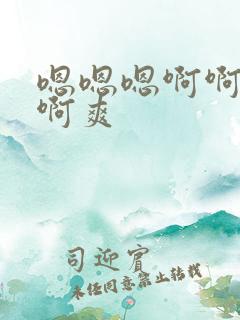 嗯嗯嗯啊啊
啊爽
司迎賓
未经同意禁止转载